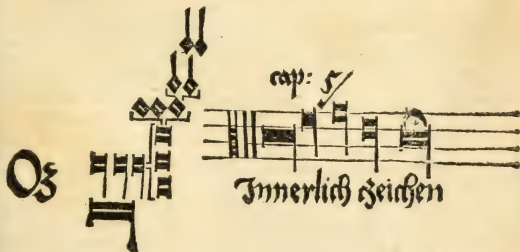 cap: 5
Oz
Innerlich zeichen